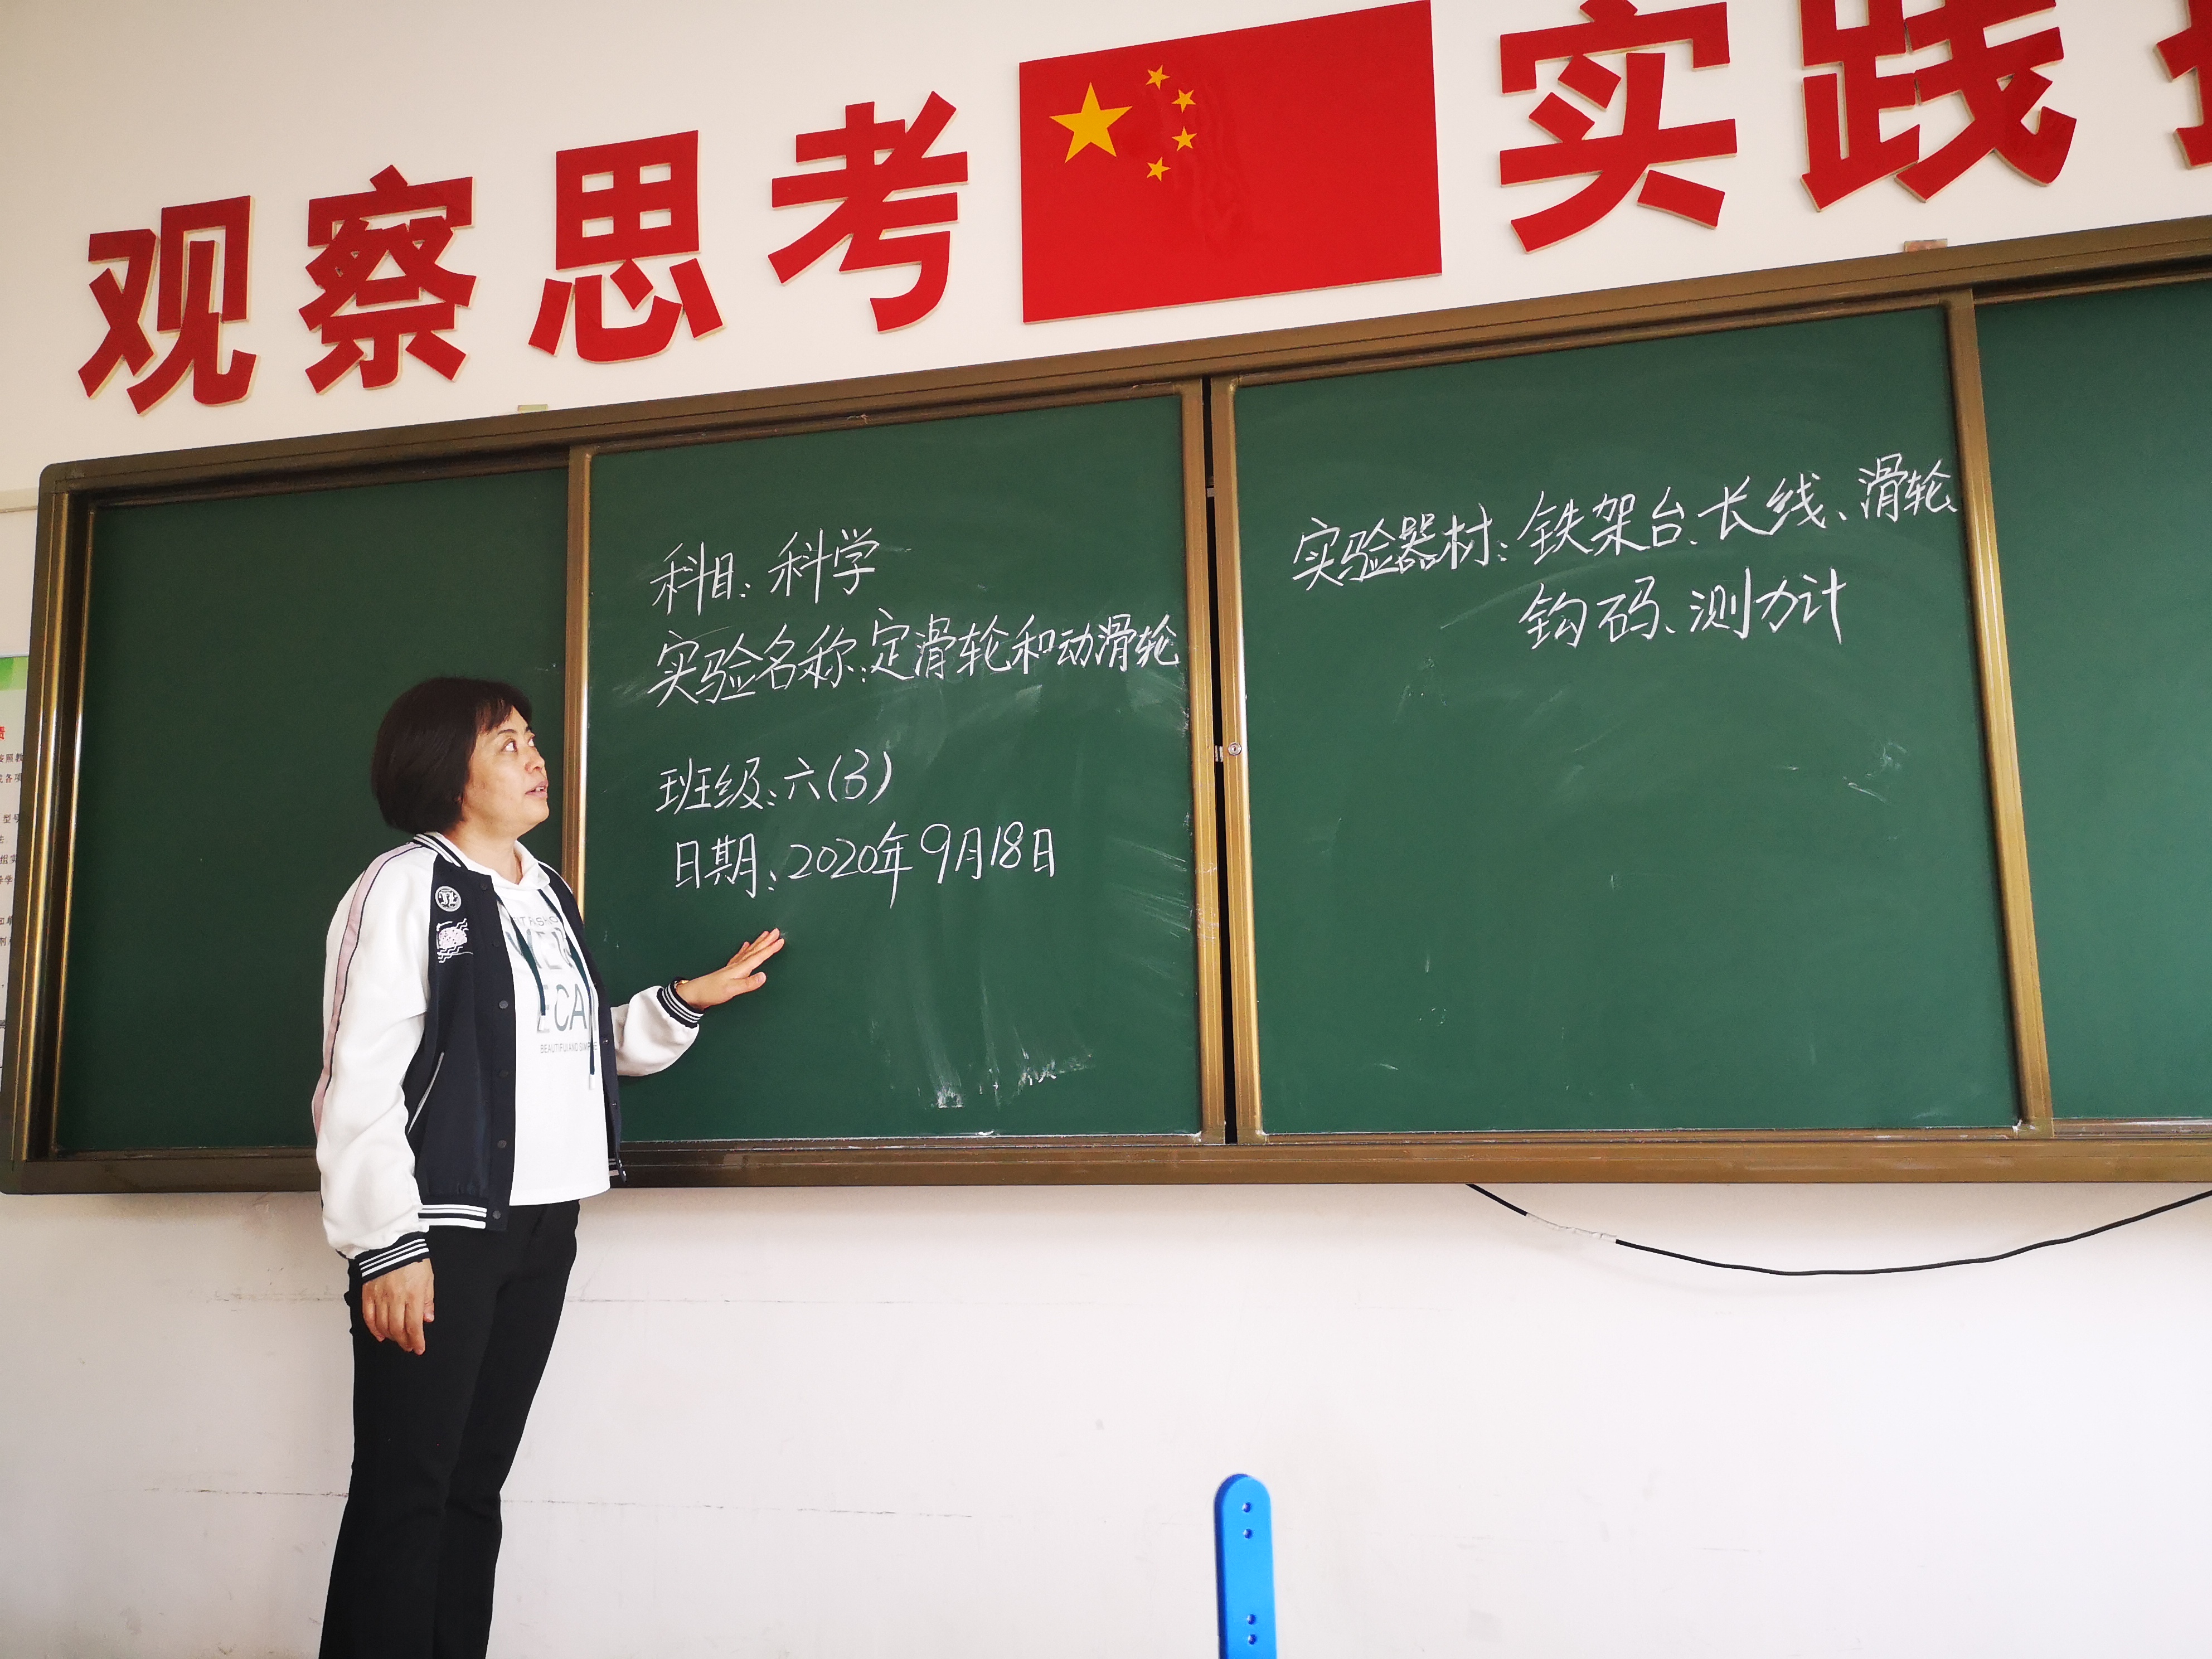 观察思考 实践
科目：科学
实验名称：定滑轮和动滑轮
班级：六(3)
日期：2020年9月18日
实验器材：铁架台、长线、滑轮
钩码、测力计
ECA
BEAUTIFUL AND SIMPLE